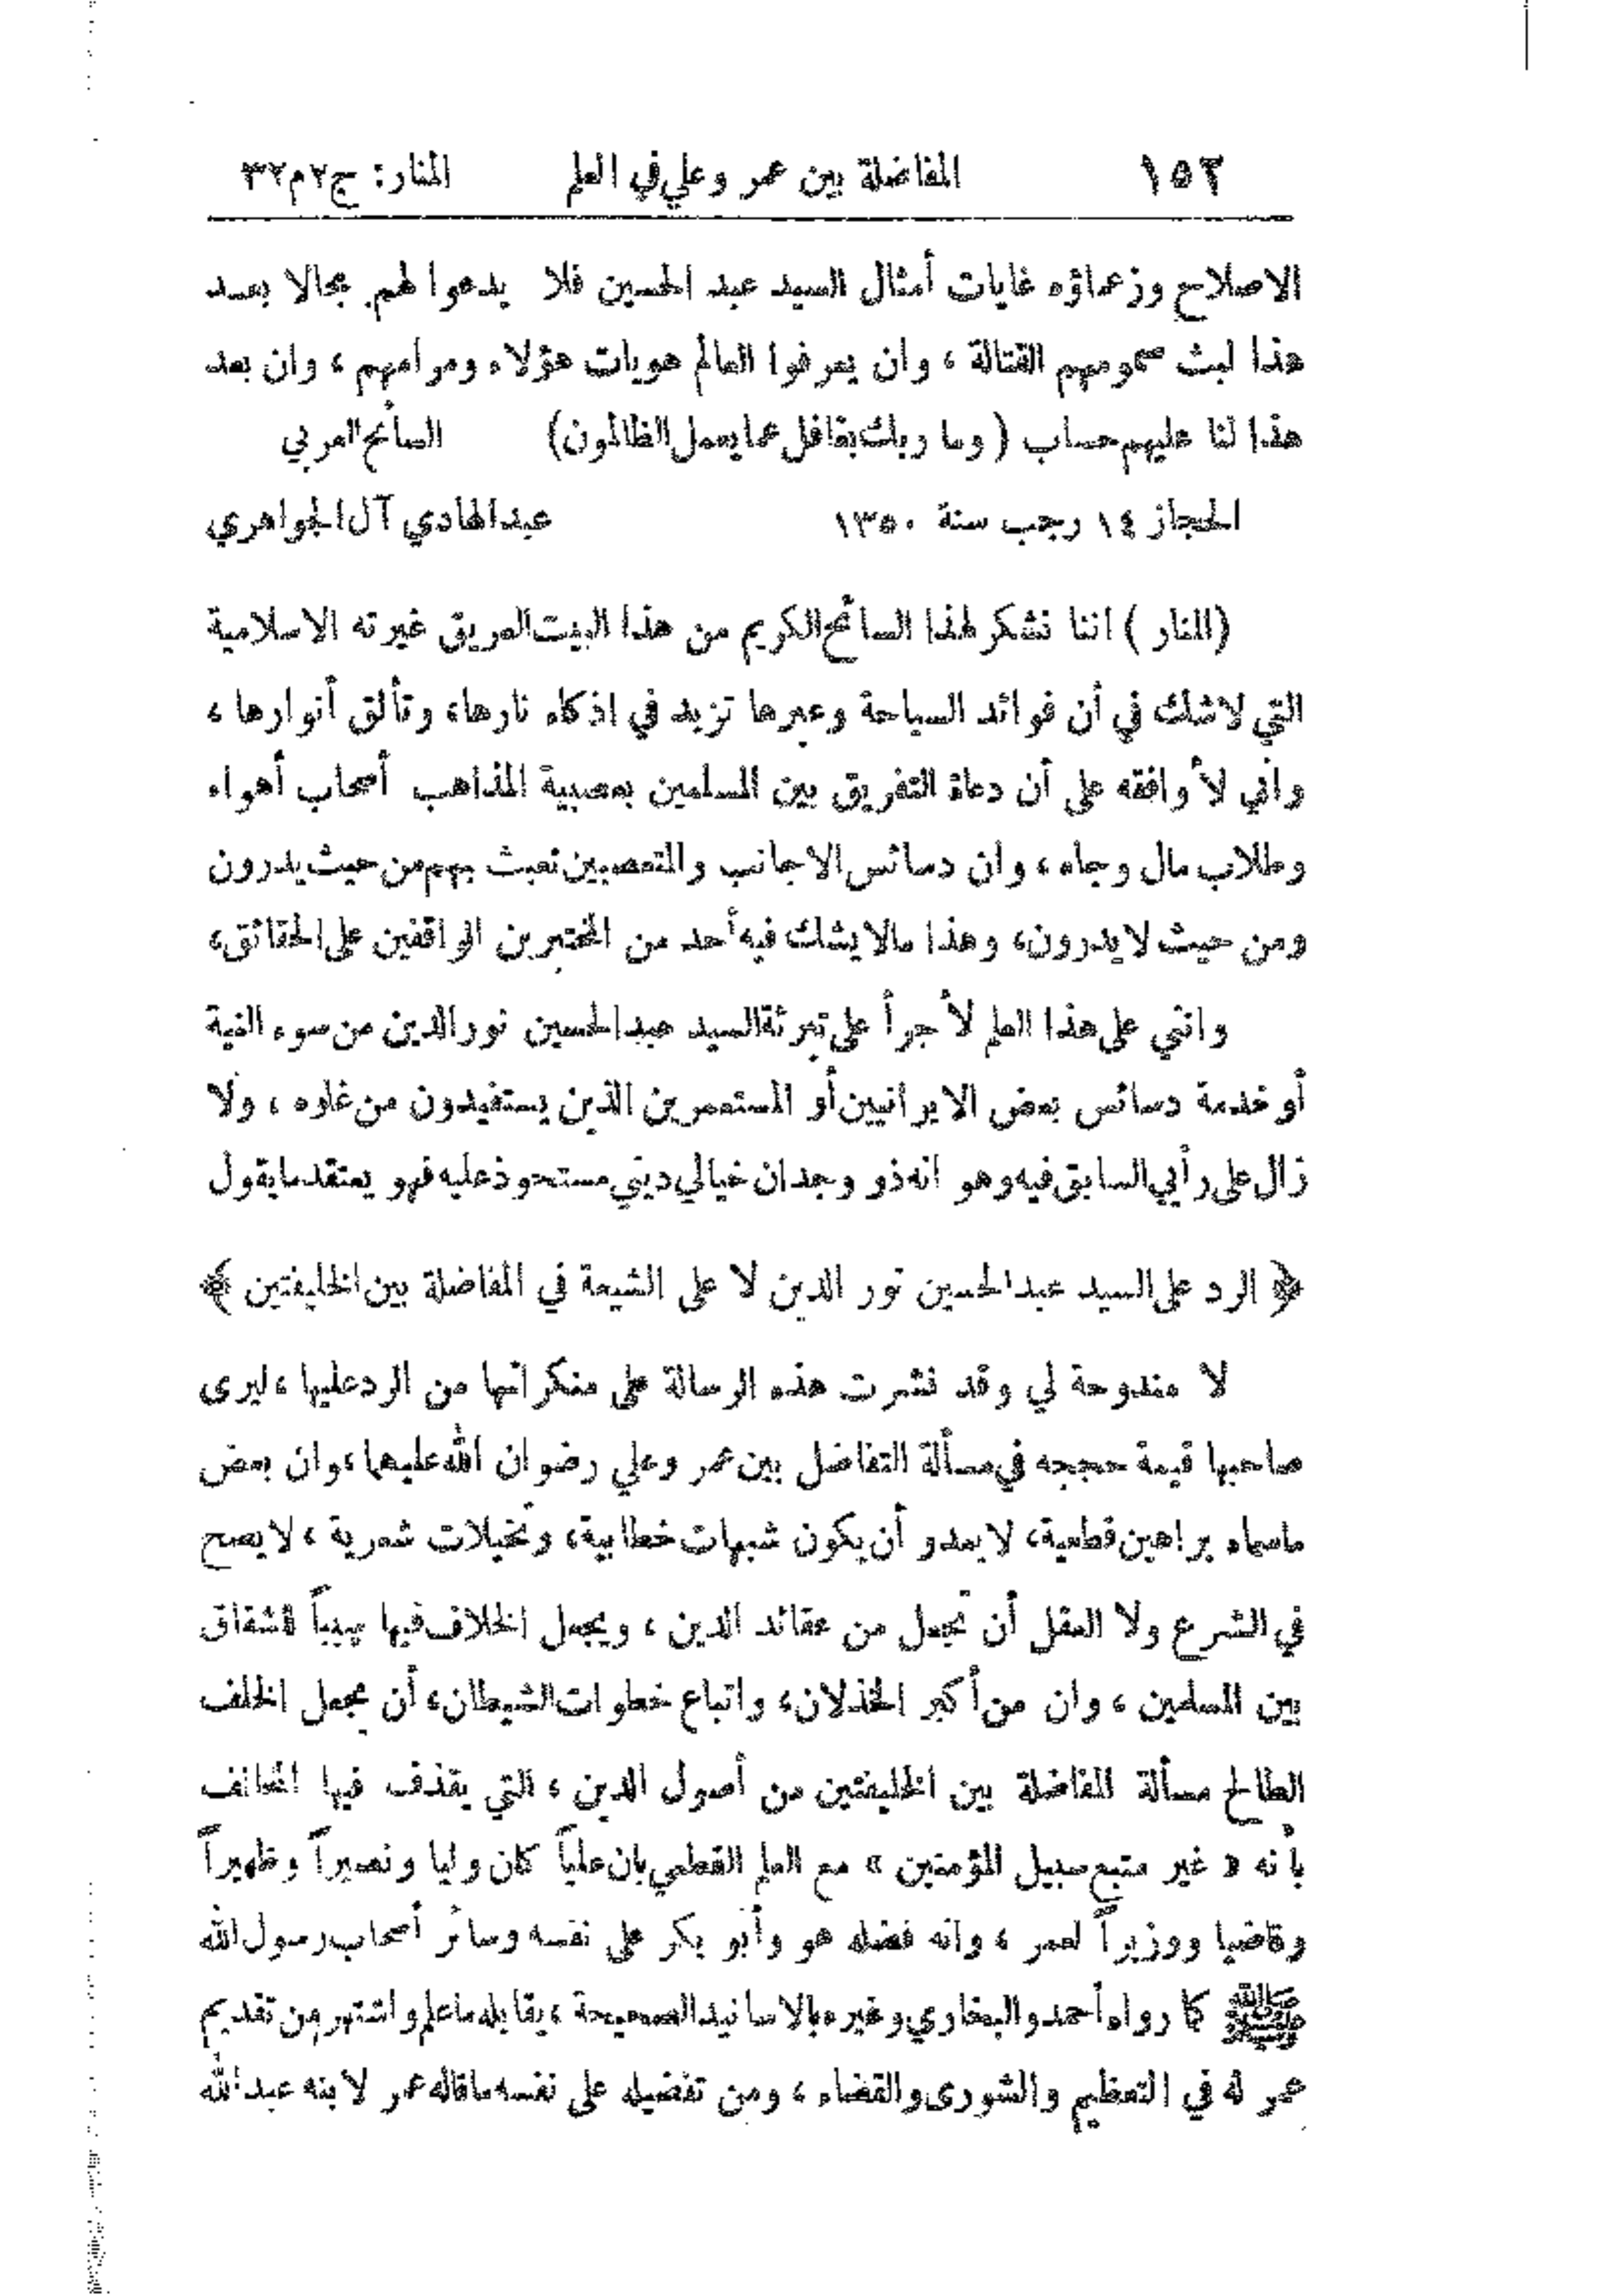 ١٥٢ المفاضلة بين عمر وعلي في العلم المنار: ج٢م٣٢
الاصلاح وزعماؤه غايات أمثال السيد عبد الحسين فلا يدعوا لهم مجالا بعد
هذا لبث سمومهم القتالة ، وان يعرفوا العالم هويات هؤلاء ومرامهم ، وان بعد
هذا لنا عليهم حساب ( وما ربك بغافل عما يعمل الظالمون) السائح العربي
الحجاز ١٤ رجب سنة ١٣٥٠ عبد الهادي آل الجواهري
(المنار ) اننا نشكر لهذا السائح الكريم من هذا البيت العريق غيرته الاسلامية
التي لاشك في أن فوائد السياحة وعبرها تزيد في اذكاء نارها، وتألق أنوارها ،
وأني لأوافقه على أن دعاة التفريق بين المسلمين بعصبية المذاهب أصحاب أهواء
وطلاب مال وجاه ، وان دسائس الاجانب والمتعصبين تعبث بهم من حيث يدرون
ومن حيث لا يدرون، وهذا مالا يشك فيه أحد من المختبرين الواقفين على الحقائق،
وانني على هذا العلم لأجرأ على تبرئة السيد عبد الحسين نور الدين من سوء النية
أو خدمة دسائس بعض الايرانيين أو المستعمرين الذين يستفيدون من غلوه ، ولا
زال على رأيي السابق فيه وهو انه ذو وجدان خيالي ديني مستحوذ عليه فهو يعتقد ما يقول
﴿ الرد على السيد عبد الحسين نور الدين لا على الشيعة في المفاضلة بين الخليفتين ﴾
لا مندوحة لي وقد نشرت هذه الرسالة على منكراتها من الرد عليها ، ليرى
صاحبها قيمة حججه في مسألة التفاضل بين عمر وعلي رضوان الله عليهما ، وان بعض
ماسماه براهين قطعية، لا يعدو أن يكون شبهات خطابية، وتخيلات شعرية ، لا يصح
في الشرع ولا العقل أن تجعل من عقائد الدين ، ويجعل الخلاف فيها سببا لشقاق
بين المسلمين ، وان من أكبر الخذلان، واتباع خطوات الشيطان، أن يجعل الخلف
الطالح مسألة المفاضلة بين الخليفتين من أصول الدين ، التي يقذف فيها المخالف
بأنه « غير متبع سبيل المؤمنين » مع العلم القطعي بان علياً كان وليا ونصيراً وظهيراً
وقاضيا ووزيراً لعمر ، وانه فضله هو وأبو بكر على نفسه وسائر أصحاب رسول الله
ﷺ كما رواه أحمد والبخاري وغيره بالاسانيد الصحيحة ، يقابله ما علم واشتهر من تقديم
عمر له في التعظيم والشورى والقضاء ، ومن تفضيله على نفسه ماقاله عمر لابنه عبد الله